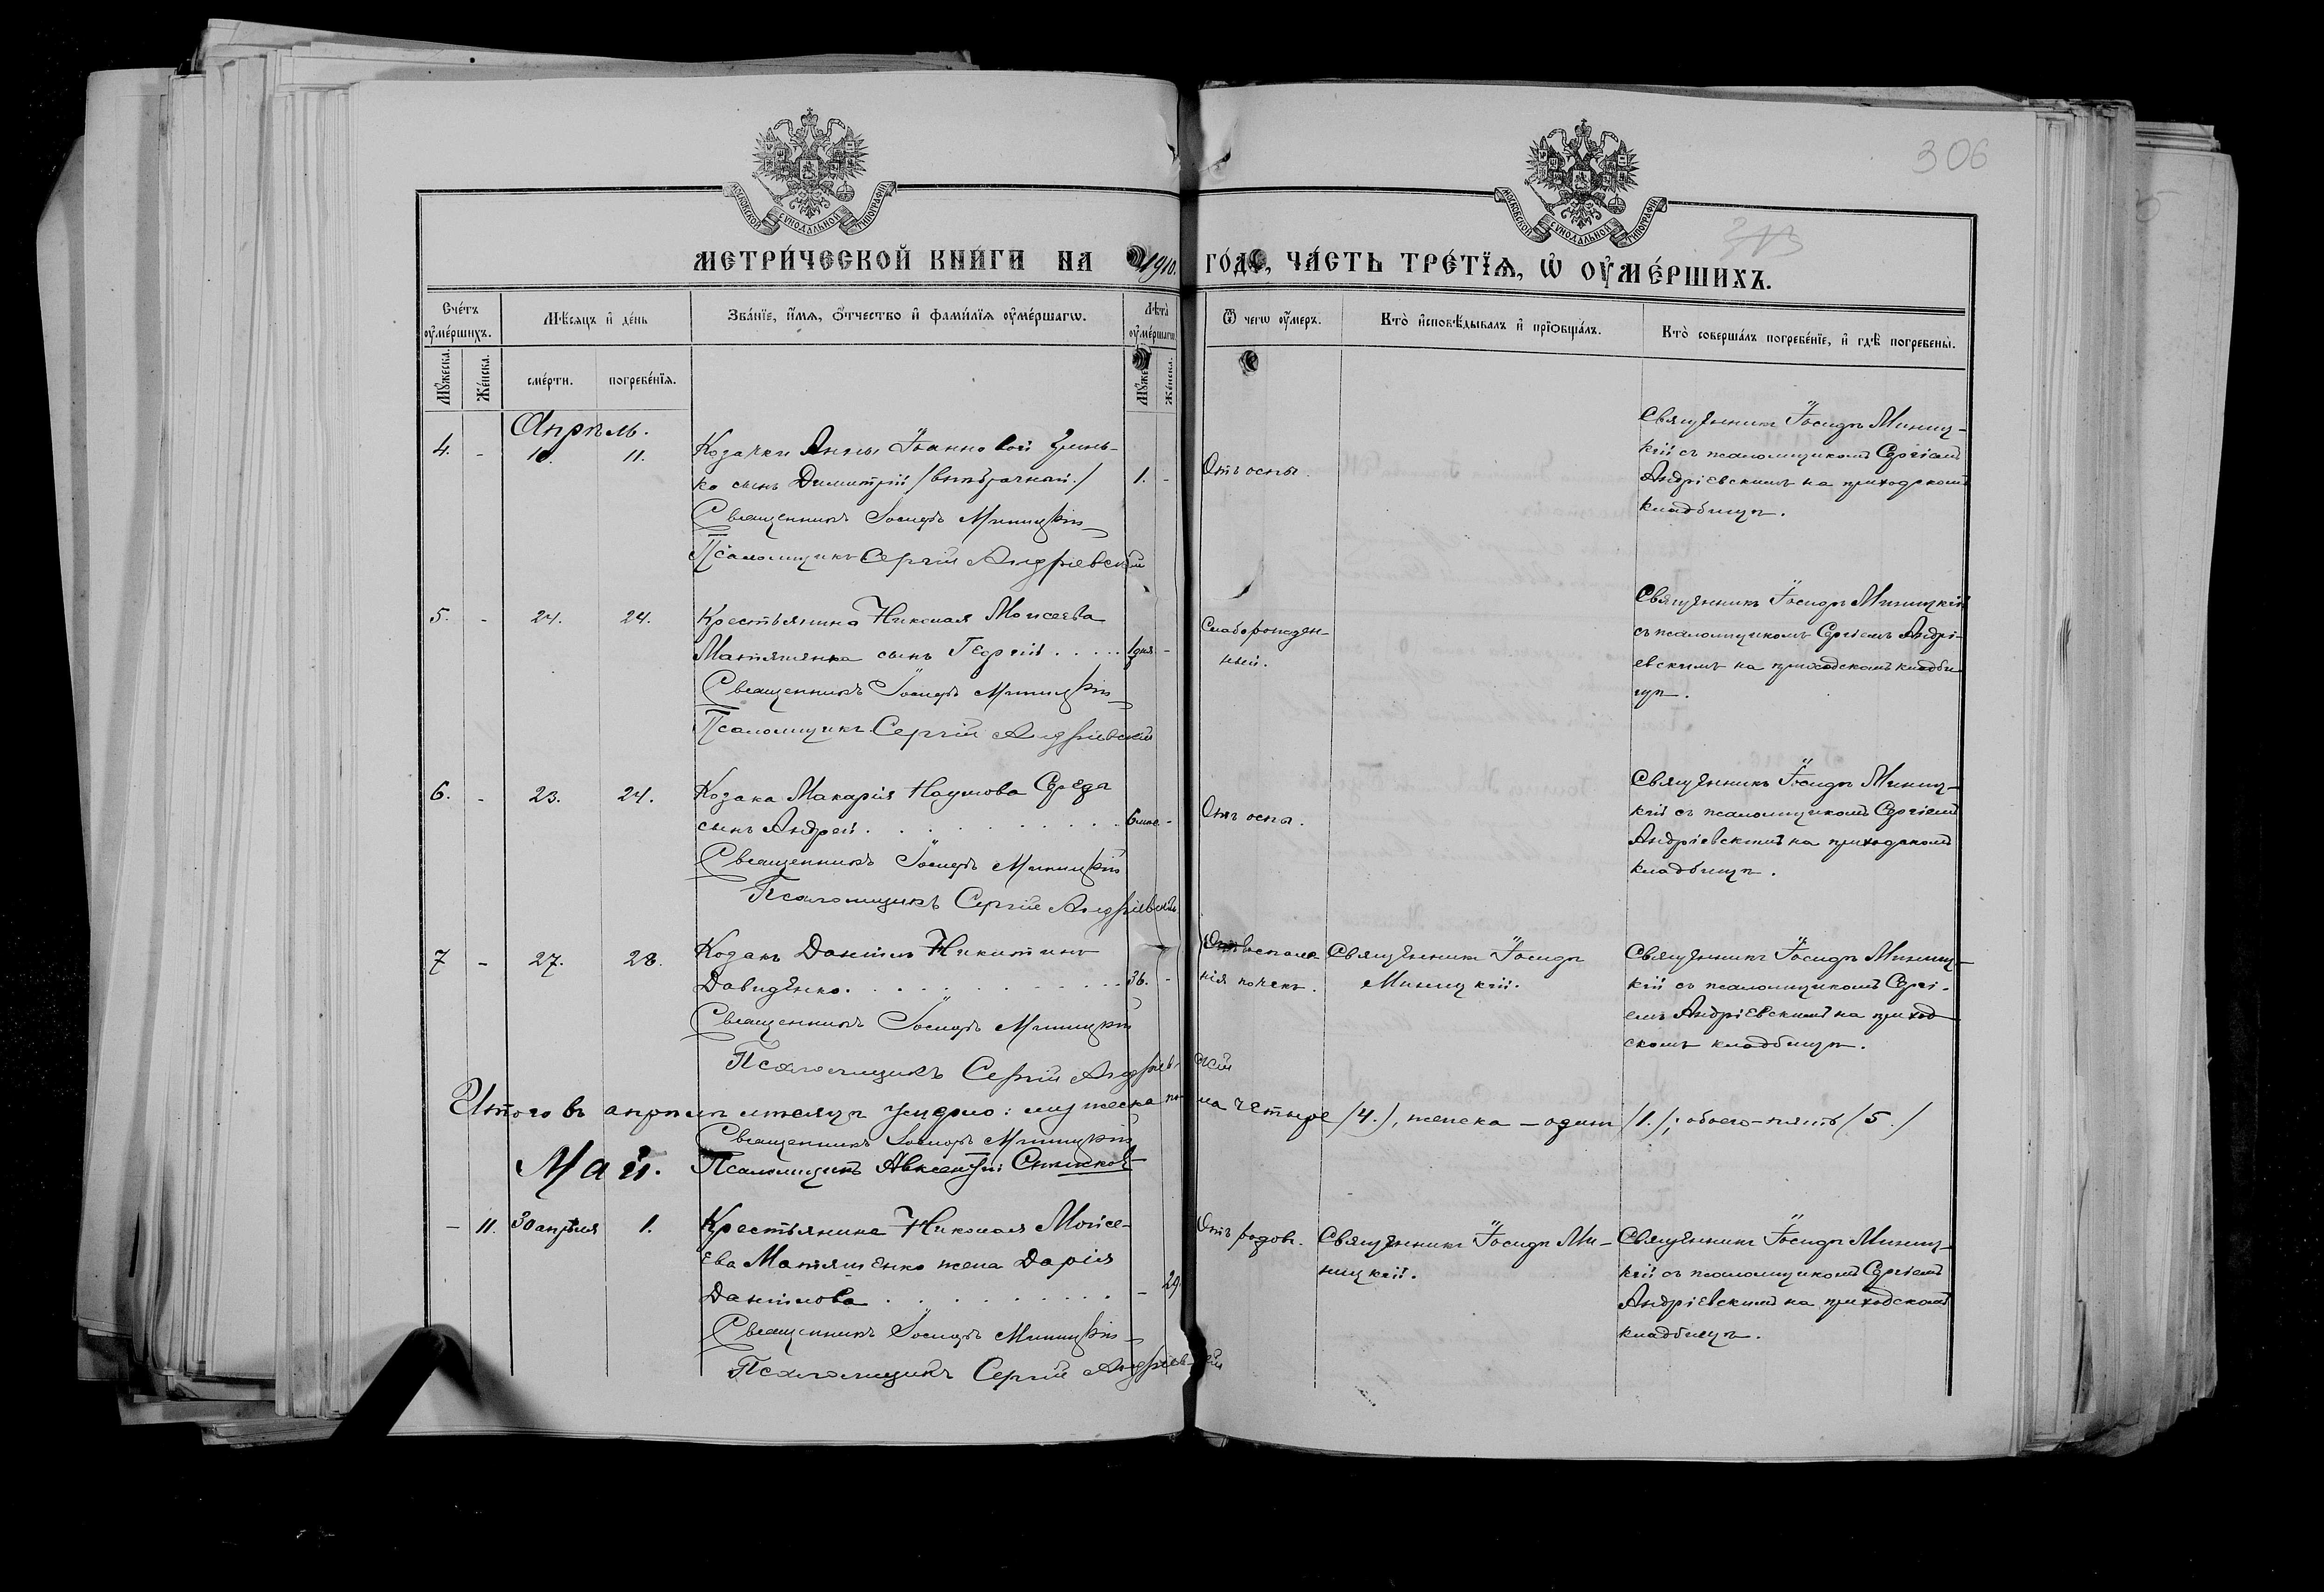 306
313
МОСКОВСКОЙ СѴНОДАЛЬНОЙ ТИПОГРАФІИ
МОСКОВСКОЙ СѴНОДАЛЬНОЙ ТИПОГРАФІИ
МЕТРИ́ЧЕСКОЙ КНИ́ГИ НА 1910 ГО́ДЪ, ЧА́СТЬ ТРЕ́ТЇѦ, Ѡ҆ ОУ҆МЕ́РШИХЪ.
Сче́тъ оу҆ме́ршихъ.
Мѣ́сяцъ и҆ де́нь
Зва́нїе, и҆́мѧ, ѻ҆́тчество и҆ фами́лїѧ оу҆ме́ршагѡ.
Лѣ́та оу҆ме́ршагѡ
Ѿ чегѡ̀ оу҆́меръ.
Кто̀ и҆сповѣ́дывалъ и҆ прїѡбща́лъ.
Кто̀ соверша́лъ погребе́нїе, и҆ гдѣ̀ погребены̀.
Мꙋ́жеска. Же́нска. сме́рти. погребе́нїѧ. Мꙋ́жеска. Же́нска.
Апрѣль.
4. - 10. 11.
Козачки Анны Іоанновой Зинь-
ко сынъ Димитрій /внѣбрачный./ 1. -
Священникъ Іосифъ Миницкій
Псаломщикъ Сергій Андріевскій
Отъ оспы.
Священникъ Іосифъ Миниц-
кій съ псаломщикомъ Сергіемъ
Андріевскимъ на приходскомъ
кладбищѣ.
5. - 24. 24.
Крестьянина Николая Моисеева
Матяшенка сынъ Георгій . . . . . 1 дня. -
Священникъ Іосифъ Миницкій
Псаломщикъ Сергій Андріевскій
Слаборожден-
ный.
Священникъ Іосифъ Миницкій
съ псаломщикомъ Сергіемъ Андрі-
евскимъ на приходскомъ кладби-
щѣ.
6. - 23. 24.
Козака Макарія Наумова Середа
сынъ Андрей . . . . . . . . . 6 мѣс. -
Священникъ Іосифъ Миницкій
Псаломщикъ Сергій Андріевскій
Отъ оспы.
Священникъ Іосифъ Миниц-
кій съ псаломщикомъ Сергіемъ
Андріевскимъ на приходскомъ
кладбищѣ.
7 - 27. 28.
Козакъ Даніилъ Никитинъ
Давиденко . . . . . . . . . . 36. -
Священникъ Іосифъ Миницкій
Псаломщикъ Сергій Андріевскій
Отъ воспале-
нія почекъ.
Священникъ Іосифъ
Миницкій.
Священникъ Іосифъ Миниц-
кій съ псаломщикомъ Сергі-
емъ Андріевскимъ на приход-
скомъ кладбищѣ.
Итого въ апрѣлѣ мѣсяцѣ умерло: мужеска по-ла четыре /4./, женска – один /1./; обоего – пять /5./
Священникъ Іосифъ Миницкій
Май. Псаломщикъ Авксентій
- 11. 30 апрѣля 1.
Крестьянина Николая Мойсе-
ева Матяшенко жена Дарія
Даніилова . . . . . . . . . . - 29
Священникъ Іосифъ Миницкій
Псаломщикъ Сергій Андріевскій
Отъ родовъ.
Священникъ Іосифъ Ми-
ницкій.
Священникъ Іосифъ Миниц-
кій съ псаломщикомъ Сергіемъ
Андріевскимъ на приходскомъ
кладбищѣ.